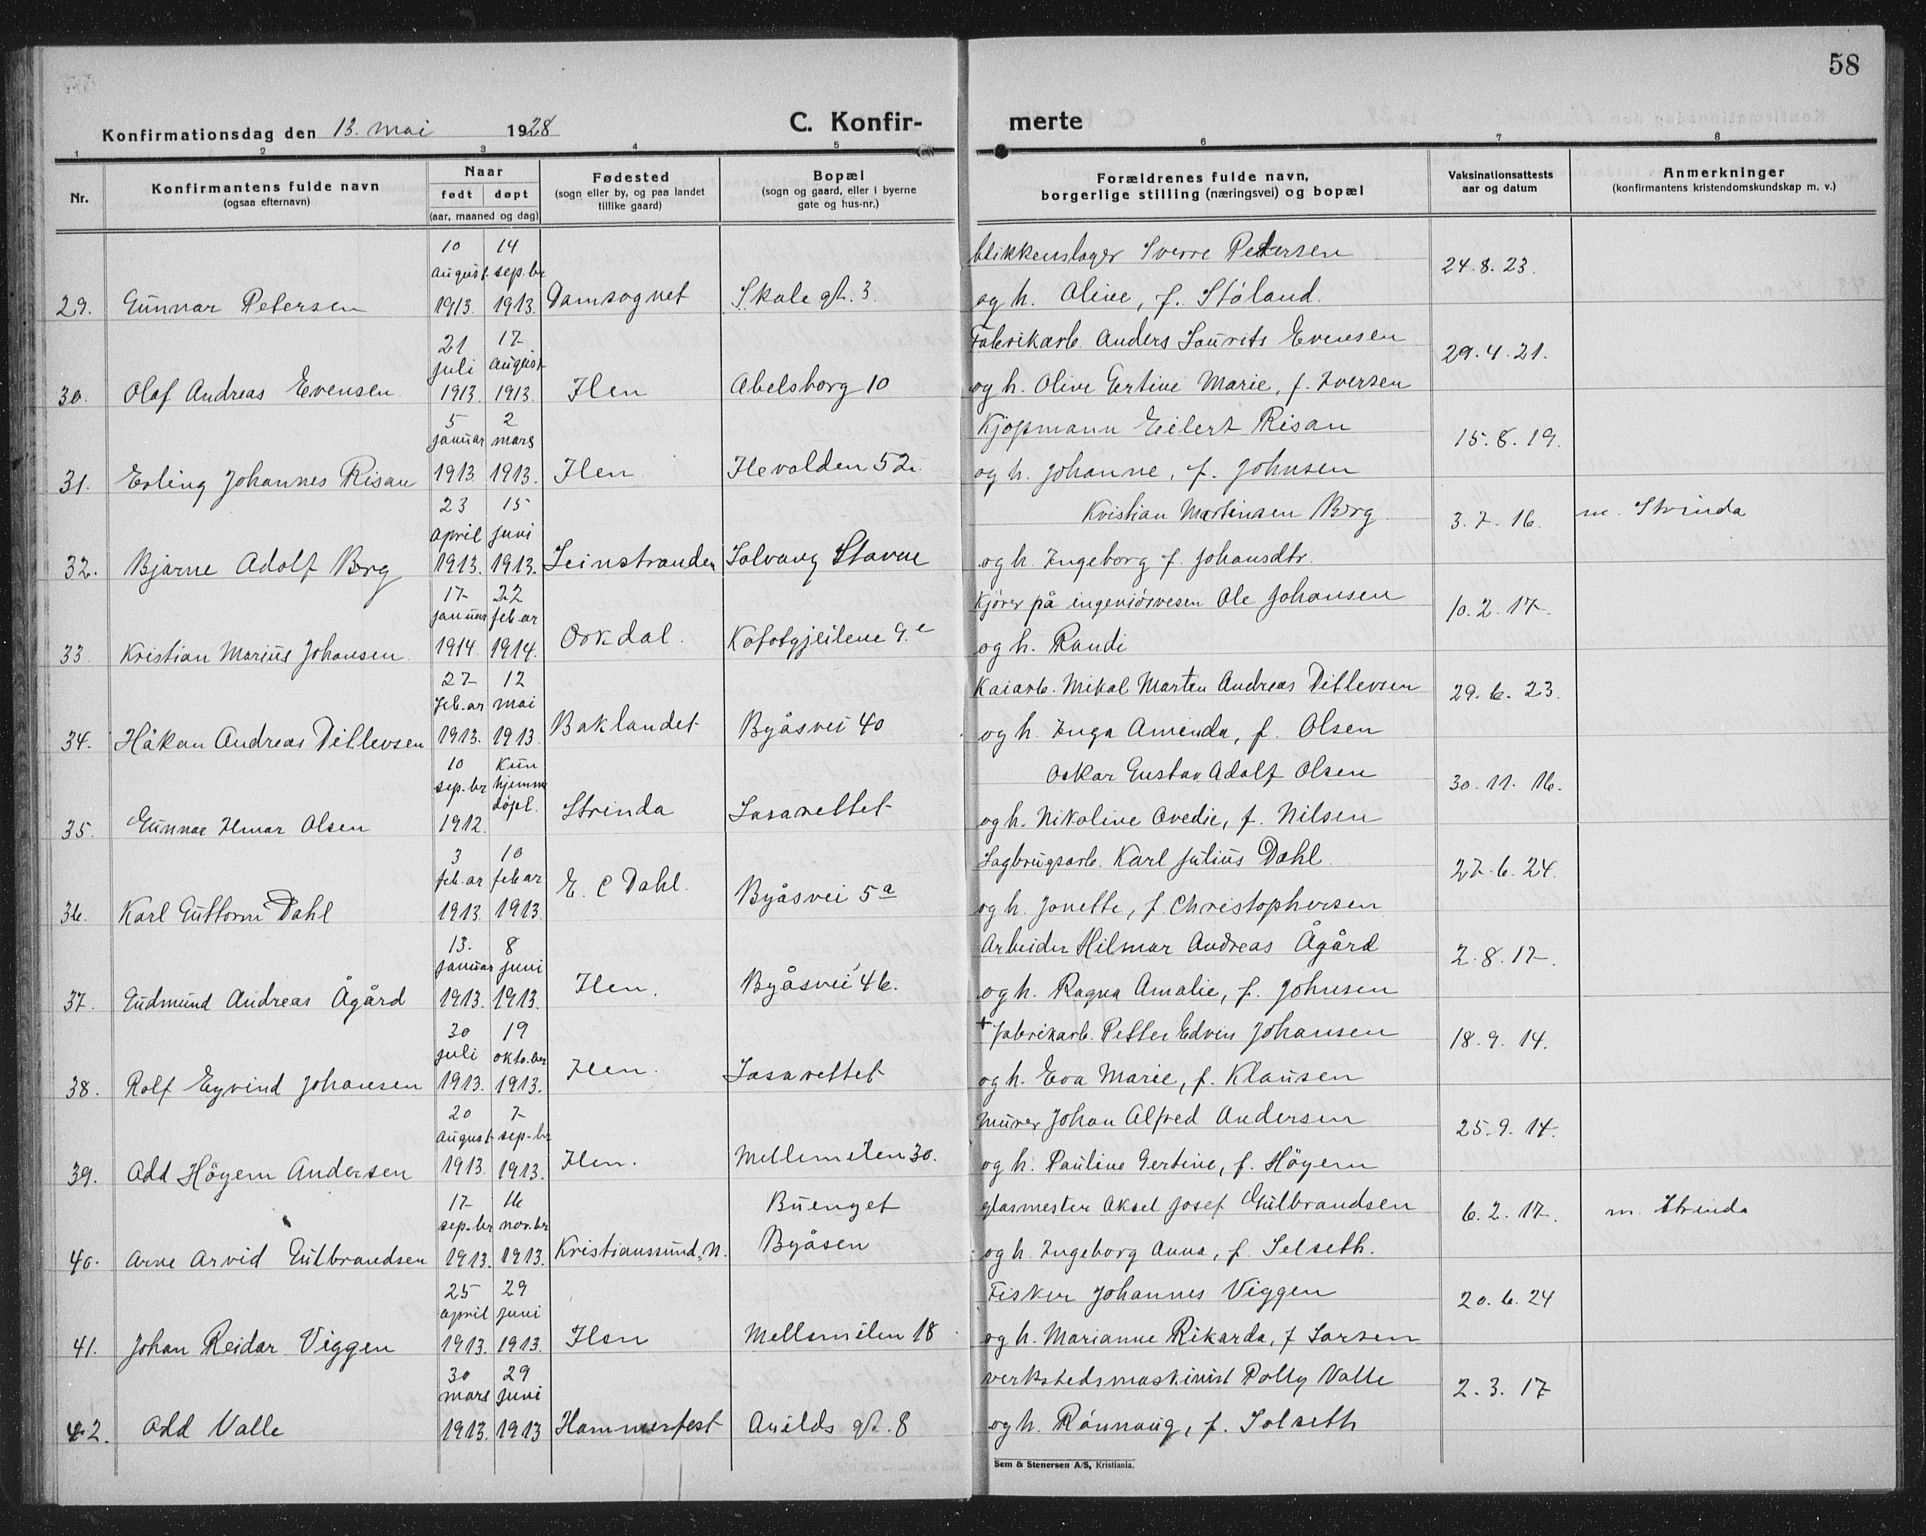 58
Konfirmationsdag den 13. mai 1928 C. Konfir- merte
1 2 3 4 5 6 7 8
Nr. Konfirmantens fulde navn (ogsaa efternavn)
Naar født døpt (aar, maaned og dag)
Fødested (sogn eller by, og paa landet tillike gaard)
Bopæl (sogn og gaard, eller i byerne gate og hus-nr.)
Forældrenes fulde navn, borgerlige stilling (næringsvei) og bopæl
Vaksinationsattests aar og datum
Anmerkninger (konfirmantens kristendomskundskap m. v.)
10 14 blikkenslager Sverre Petersen
august sep.br 24.8.23.
29. Gunnar Petersen 1913. 1913. Domsognet Skole gt. 3. og h. Olive, f. Støland.
21 17 Fabrikarb. Anders Laurits Evensen
juli august 29.4.21.
30. Olaf Andreas Evensen 1913. 1913. Ilen Abelsborg 10 og h. Olive Gertine Marie, f. Iversen
5 2 Kjøpmann Eilert Risan
januar mars 15.8.19.
31. Erling Johannes Risan 1913. 1913. Ilen Ilevolden 52. og h. Johanne, f. Johnsen
23 15 Kristian Martinsen Berg m. Strinda
april juni 3.7.16.
32. Bjarne Adolf Berg 1913. 1913. Leinstranden Solvang Stavne og h. Ingeborg f. Johansdtr.
17 22 Kjører på ingeniørvesen Ole Johansen
januar feb.ar 10.2.17.
33 Kristian Marius Johansen. 1914. 1914. Orkdal. Kofotgjeilene 9.e og h. Randi
27 12 Kaiarb. Mikal Marten Andreas Ditlevsen
feb.ar mai 29.6.23.
34. Håkon Andreas Ditlevsen 1913. 1913. Baklandet Byåsvei 40 og h. Inga Amenda, f. Olsen
10 Kun Oskar Gustav Adolf Olsen
sep.br hjemme døpt. 30.11.16.
35. Gunnar Ilmar Olsen 1912. Strinda Lasarettet og h. Nikoline Ovedie, f. Nilsen
3 10 Sagbrugsarb. Karl Julius Dahl.
feb.ar feb.ar 27.6.24.
36. Karl Guttorm Dahl 1913. 1913. E. C Dahl. Byåsvei 5a og h. Jonette, f. Christophersen
13. 8 Arbeider Hilmar Andreas Ågård
januar juni 2.8.17.
37. Gudmund Andreas Ågård 1913. 1913. Ilen. Byåsvei 46. og h. Ragna Amalie, f. Johnsen
30 19 + fabrikarb. Petter Edvin Johansen
juli okto.ber 18.9.14.
38. Rolf Eyvind Johansen 1913. 1913. Ilen. Lasarettet og h. Eva Marie, f. Klausen
20 7 murer Johan Alfred Andersen
august sep.br 25.9.14.
39. Odd Höyem Andersen 1913. 1913. Ilen. Mellemilen 30. og h. Pauline Gertine, f. Höyem
17 16 Buenget glasmester Aksel Josef Gulbrandsen
sep.br nov.br 6.2.17. m. Strinda
40. Arne Arvid Gulbrandsen 1913. 1913. Kristianssund, N. Byåsen og h. Ingeborg Anna, f. Selseth.
25 29 Fisker Johannes Viggen
april juni 20.6.24
41. Johan Reidar Viggen 1913. 1913. Ilen Mellemilen 18. og h. Marianne Rikarda, f Larsen
30 29 verkstedsmaskinist Polly Valle
mars juni 2.3.17
42. Odd Valle 1913. 1913 Hammerfest Arilds gt. 8 og h. Rönnaug, f. Solseth
Sem & Stenersen A/S, Kristiania.